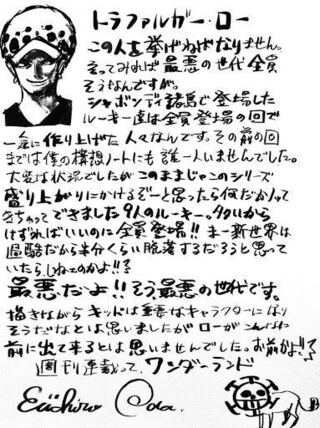 トラファルガー・ロー
この人を挙げねばなりません。
言ってみれば最悪の世代全員
そうなんですが。
シャボンディ諸島で登場した
ルーキー達は全員登場の回で
一気に作り上げた人々なんです。その前の回
までは僕の構想ノートにも誰一人いませんでした。
大変な状況でしたがこのままじゃこのシリーズ
盛り上がりにかけるぞーと思ったら何だか入って
きちゃってできました9人のルーキー。多いから
けずればいいのに全員登場!! まー新世界は
過酷だから半分くらい脱落するだろうと思って
いたら、しねェのかよ!!?
最悪だよ!!そう最悪の世代です。
描きながらキッドは重要なキャラクターになり
そうだなとは思いましたがローがこんなに
前に出て来るとは思いませんでした。お前かよ!!?
週刊連載って、ワンダーランド
Eiichiro Oda.